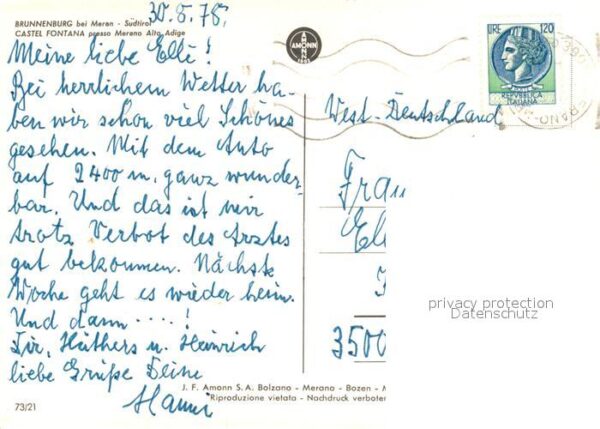 30.8.78.
BRUNNENBURG bei Meran - Südtirol
CASTEL FONTANA presso Merano Alto Adige
Meine liebe Elli!
Bei herrlichem Wetter ha-
ben wir schon viel Schönes
gesehen. Mit dem Auto
auf 2400 m, ganz wunder-
bar. Und das ist mir
trotz Verbot des Arztes
gut bekommen. Nächste
Woche geht es wieder heim.
Und dann ....!
Dir, u. Heinrich
liebe Grüße Deine
Hanni
73/21
AMONN
LIRE 120
REPVBBLICA
ITALIANA
West-Deutschland
Frau
3500
privacy protection
Datenschutz
J. F. Amonn S.A. Bolzano - Merano - Bozen - M
Riproduzione vietata - Nachdruck verboten